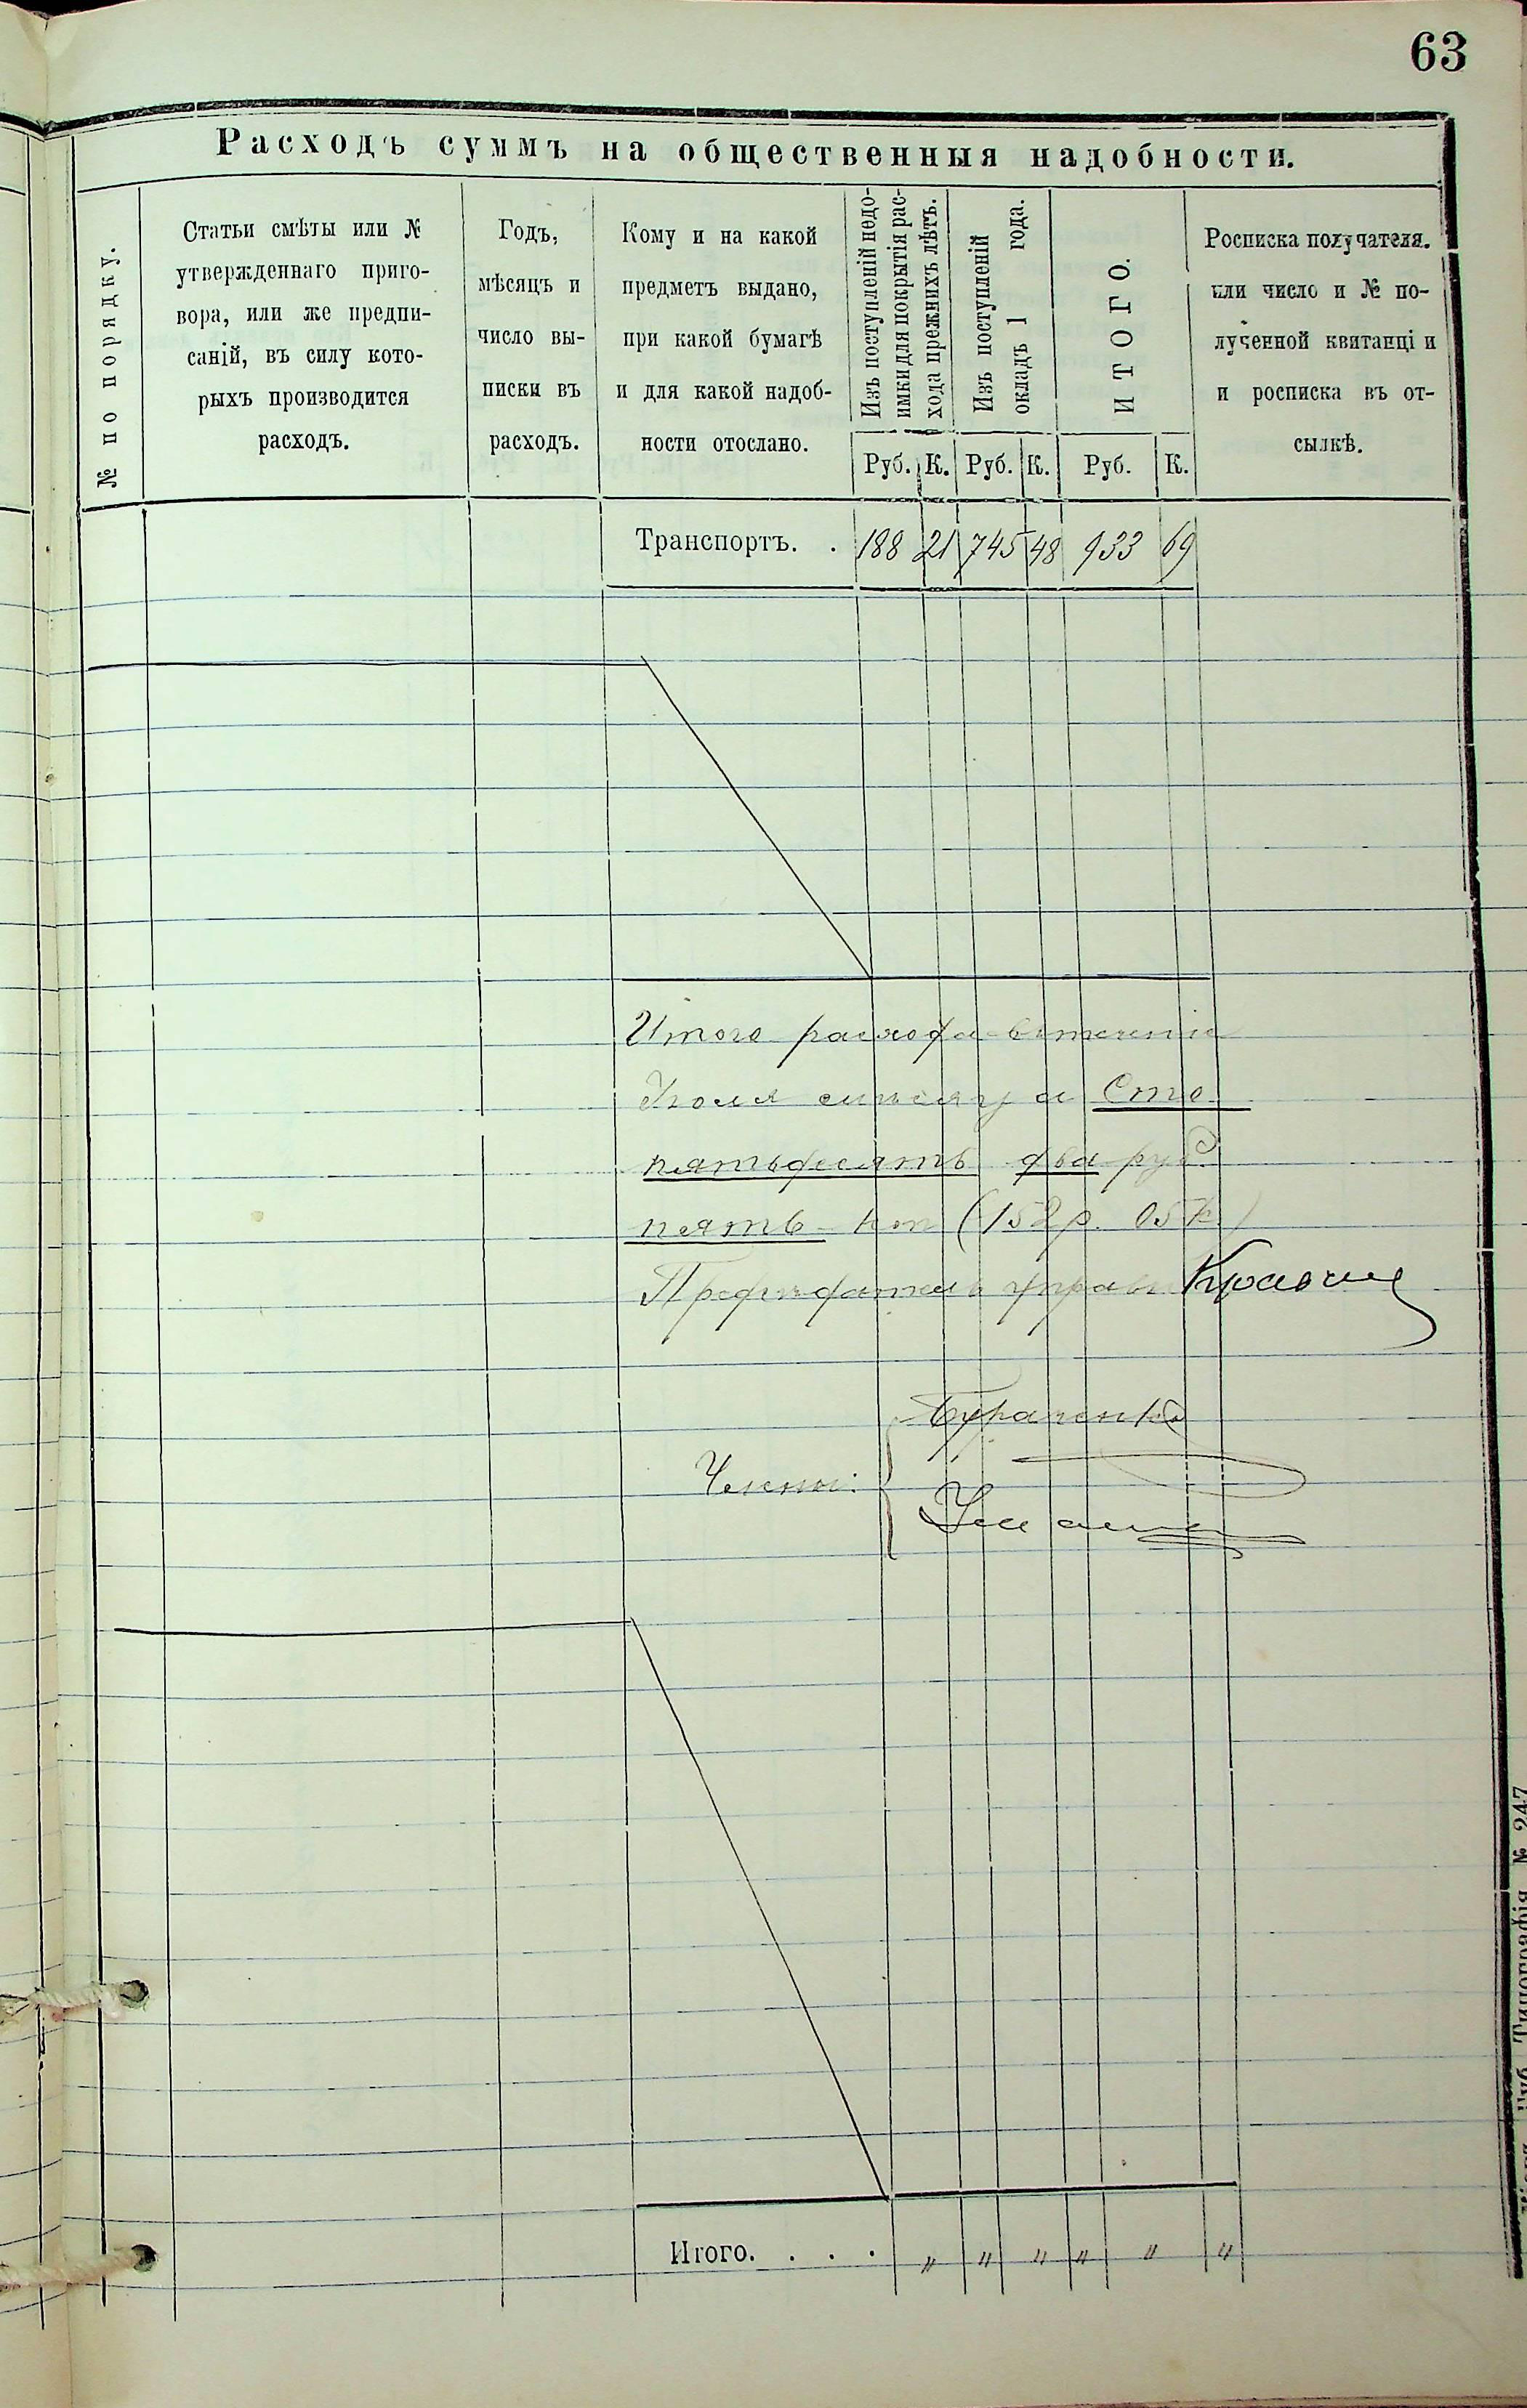 63
Расходъ суммъ на общественныя надобности.
№ по порядку.
Статьи смѣты или №
утвержденнаго приго-
вора, или же предпи-
саній, въ силу кото-
рыхъ производится
расходъ.
Годъ,
мѣсяцъ и
число вы-
писки въ
расходъ.
Кому и на какой
предметъ выдано,
при какой бумагѣ
и для какой надоб-
ности отослано.
Изъ поступленій недо-
имки для покрытія рас-
хода прежнихъ лѣтъ.
Изъ поступленій
окладъ 1 года.
ИТОГО.
Росписка получателя.
или число и № по-
лученной квитанціи
и росписка въ от-
сылкѣ.
Руб. К. Руб. К. Руб. К.
Транспортъ. . 188 21 745 48 933 69
Итого расхода въ теченіи
Іюля мѣсяца Сто
пятьдесятъ два руб
пять коп (152 р. 05 к)
Предсѣдатель управы
Члены:
Итого. . . . " " " " " "
Типографія № 247